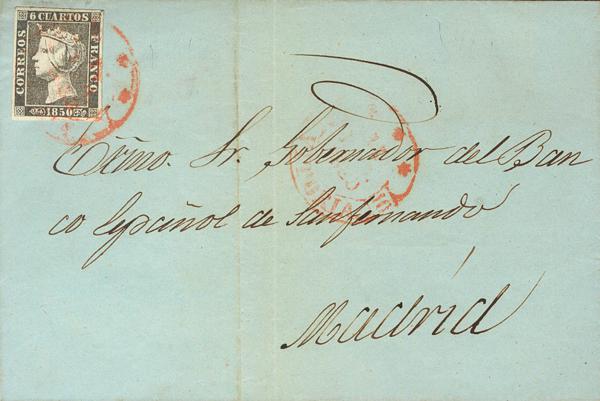 6 CUARTOS
CORREOS
FRANCO
1850
Exmo. Sr. Gobernador del Ban
co Español de Sanfernando
Madrid